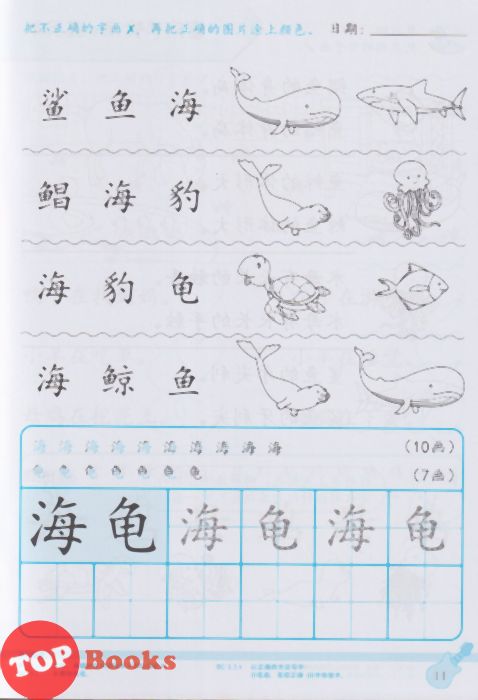 把不正确的字画 ✗，再把正确的图片涂上颜色。 日期：
鲨 鱼 海
鲳 海 豹
海 豹 龟
海 鲸 鱼
海 海 海 海 海 海 海 海 海 海 （10画）
龟 龟 龟 龟 龟 龟 龟 （7画）
海 龟 海 龟 海 龟
TOP Books
11